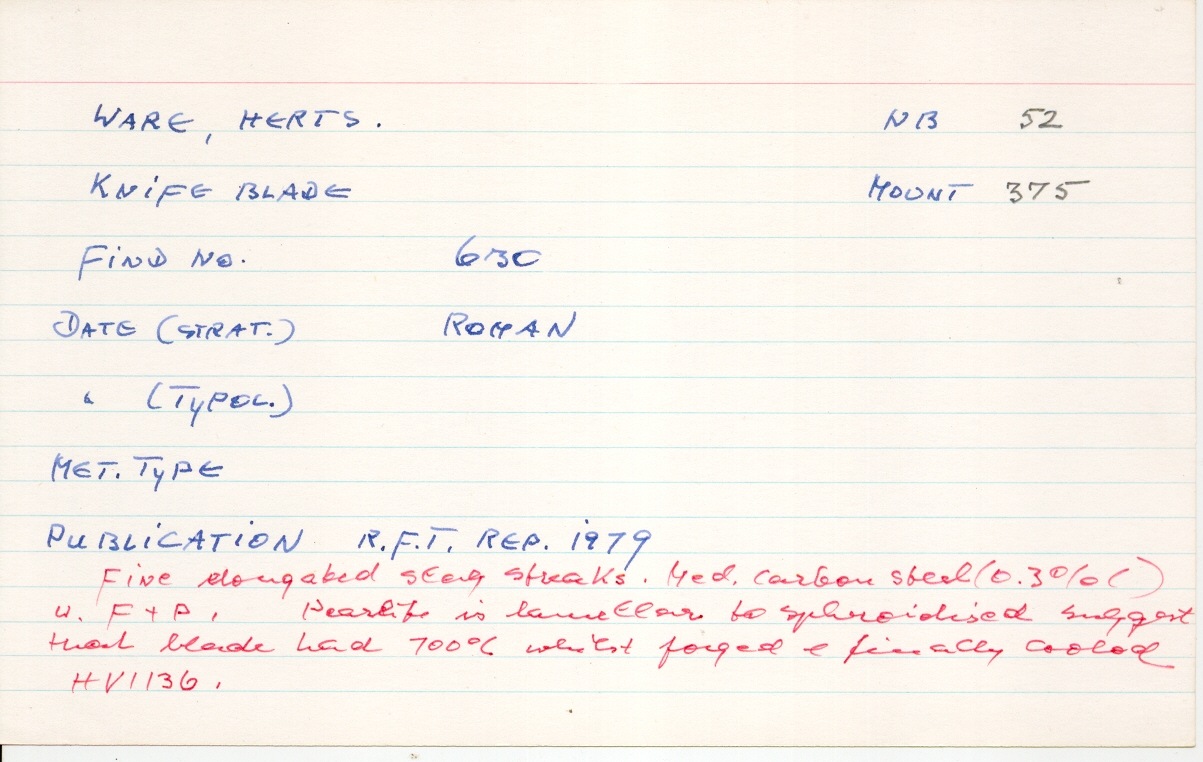 WARE, HERTS. NB 52
KNIFE BLADE MOUNT 375
FIND NO. 630
DATE (STRAT.) ROMAN
" (TYPOL.)
MET. TYPE
PUBLICATION R.F.T. REP. 1979
Fine elongated slag streaks. Med. carbon steel (0.3%C)
w. F+P. Pearlite is lamellar to sphroidised suggest
that blade had 700°C whilst forged & finally cooled
HV1136.